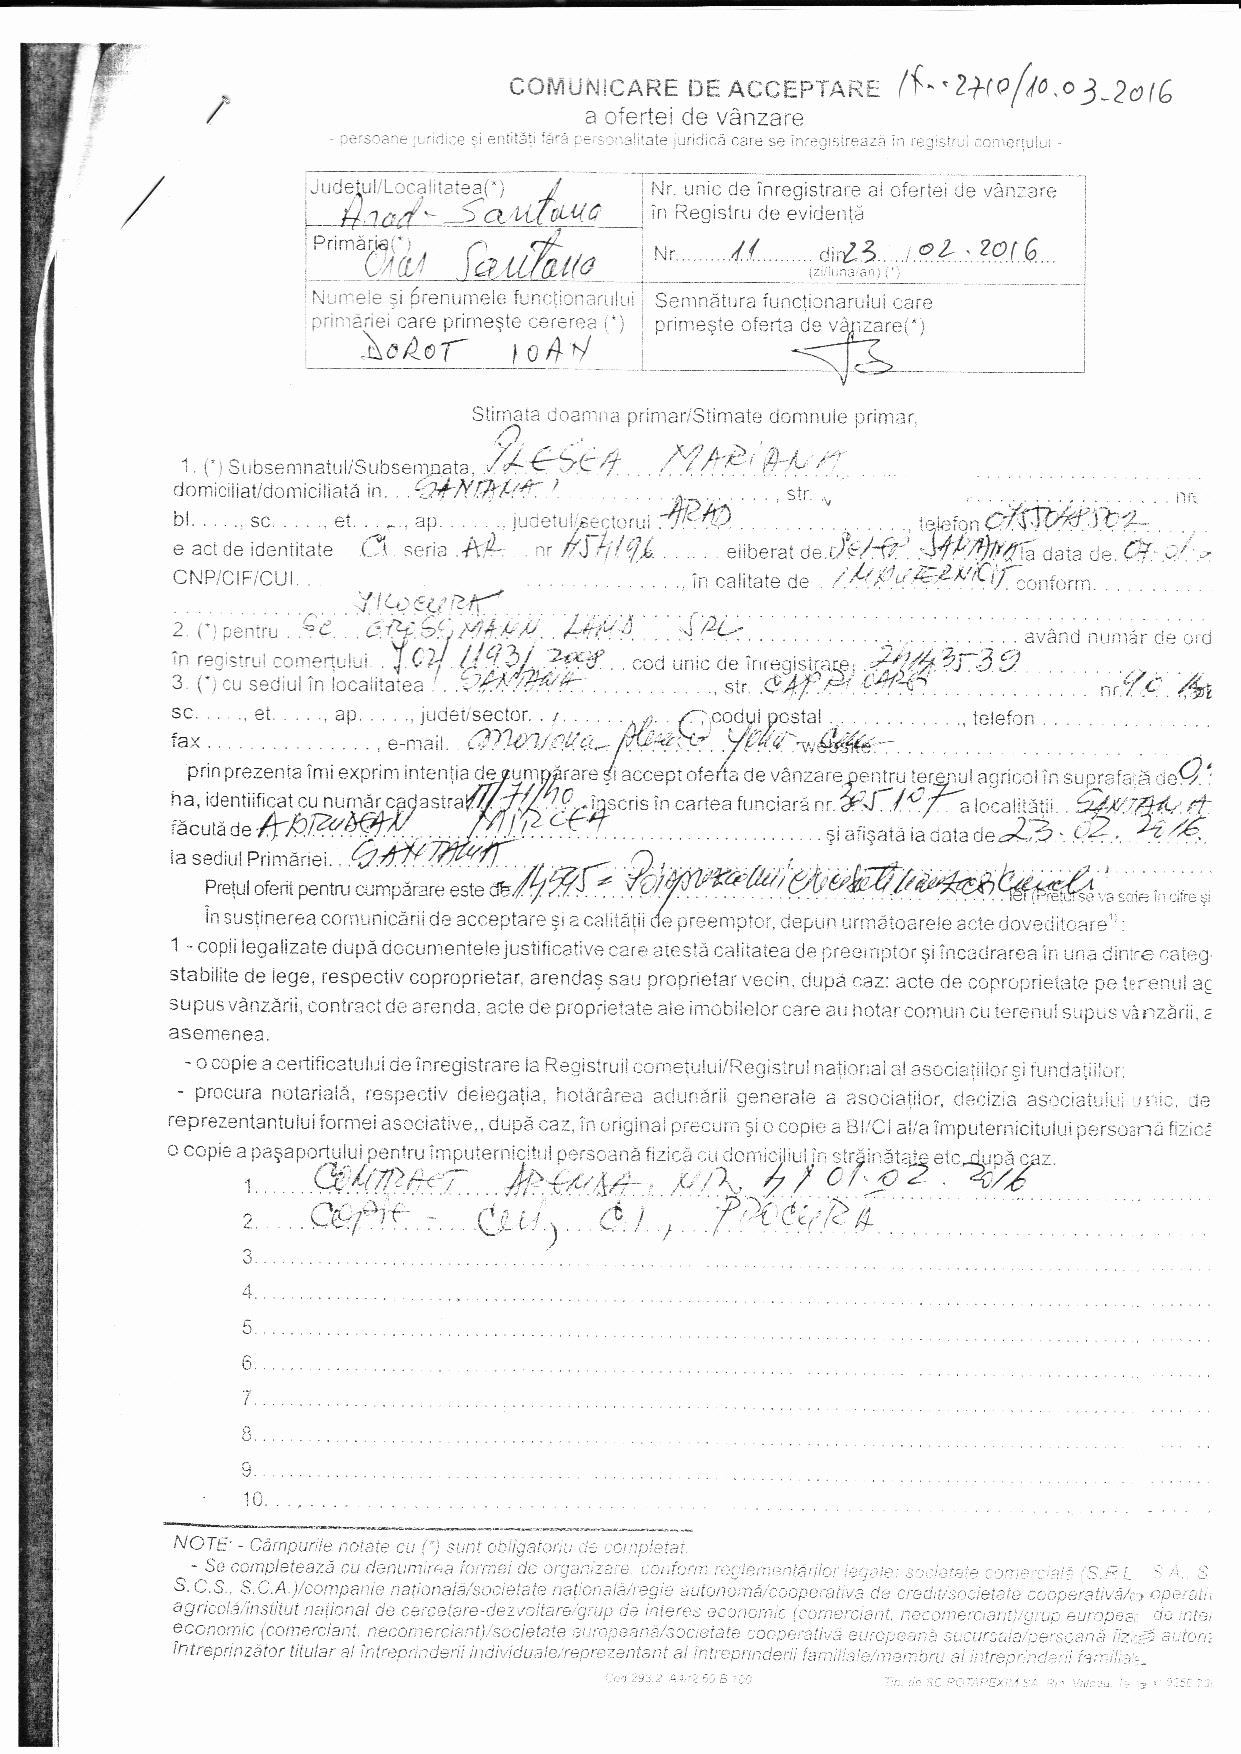 COMUNICARE DE ACCEPTARE 2710/10.03.2016
a ofertei de vânzare
- persoane juridice și entități fără personalitate juridică care se înregistrează în registrul comerțului -
Județul/Localitatea(*)
Arad - Santana
Nr. unic de înregistrare al ofertei de vânzare
în Registru de evidență
Primăria(*)
Oraș Santana
Nr......... 11 .......... din 23 / 02 . 2016
(zi/luna/an) (*)
Numele și prenumele funcționarului
primăriei care primește cererea (*)
DOROT IOAN
Semnătura funcționarului care
primește oferta de vânzare(*)
Stimata doamna primar/Stimate domnule primar,
1. (*) Subsemnatul/Subsemnata, PLESCA MARIANA
domiciliat/domiciliată in. . . SANTANA , str. nr.
bl. . . . ., sc. . . . ., et. . . . ., ap. . . . . ., județul/sectorul ARAD , telefon
e act de identitate CI seria AR nr eliberat de la data de.
CNP/CIF/CUI. . . , în calitate de IMPUTERNICIT conform.
2. (*) pentru SC LAND SRL având număr de ord
în registrul comerțului. cod unic de înregistrare,
3. (*) cu sediul în localitatea SANTANA , str. nr.
sc. . . . ., et. . . . ., ap. . . . ., județ/sector. . . codul poștal . . . . , telefon . . . .
fax . . . . , e-mail. website
prin prezenta îmi exprim intenția de cumpărare și accept oferta de vânzare pentru terenul agricol în suprafață de
ha, identiificat cu număr cadastral înscris în cartea funciară nr. 305107 a localității. SANTANA
făcută de ARDELEAN MIRCEA și afișată la data de 23. 02. 2016
la sediul Primăriei. . SANTANA
Prețul oferit pentru cumpărare este de 14595 = lei (Prețul se va scie în cifre și
în susținerea comunicării de acceptare și a calității de preemptor, depun următoarele acte doveditoare¹⁾:
1 - copii legalizate după documentele justificative care atestă calitatea de preemptor și încadrarea în una dintre categ
stabilite de lege, respectiv coproprietar, arendaș sau proprietar vecin, după caz: acte de coproprietate pe terenul ag
supus vânzării, contract de arenda, acte de proprietate ale imobilelor care au hotar comun cu terenul supus vânzării, a
asemenea.
- o copie a certificatului de înregistrare la Registrul comețului/Registrul național al asociațiilor și fundațiilor;
- procura notarială, respectiv delegația, hotărârea adunării generale a asociaților, decizia asociatului unic, de
reprezentantului formei asociative,, după caz, în original precum și o copie a BI/CI al/a împuternicitului persoană fizică
o copie a pașaportului pentru împuternicitul persoană fizică cu domiciliul în străinătate etc, după caz.
1. CONTRACT ARENDA, NR, 4 / 01.02.2016
2. COPIE - CUI, CI, PROCURĂ
3.
4.
5.
6.
7.
8.
9.
10.
NOTE: - Câmpurile notate cu (*) sunt obligatoriu de completat.
- Se completează cu denumirea formei de organizare, conform reglementărilor legale: societate comercială (S.R.L. S.A., S
S.C.S., S.C.A.)/companie națională/societate națională/regie autonomă/cooperativa de credit/societate cooperativă/cooperati
agricolă/institut național de cercetare-dezvoltare/grup de interes economic (comerciant, necomerciant)/grup european de inter
economic (comerciant, necomerciant)/societate europeană/societate cooperativă europeană sucursala/persoană fizică autori
întreprinzător titular al întreprinderii individuale/reprezentant al întreprinderii familiale/membru al întreprinderii familiale.